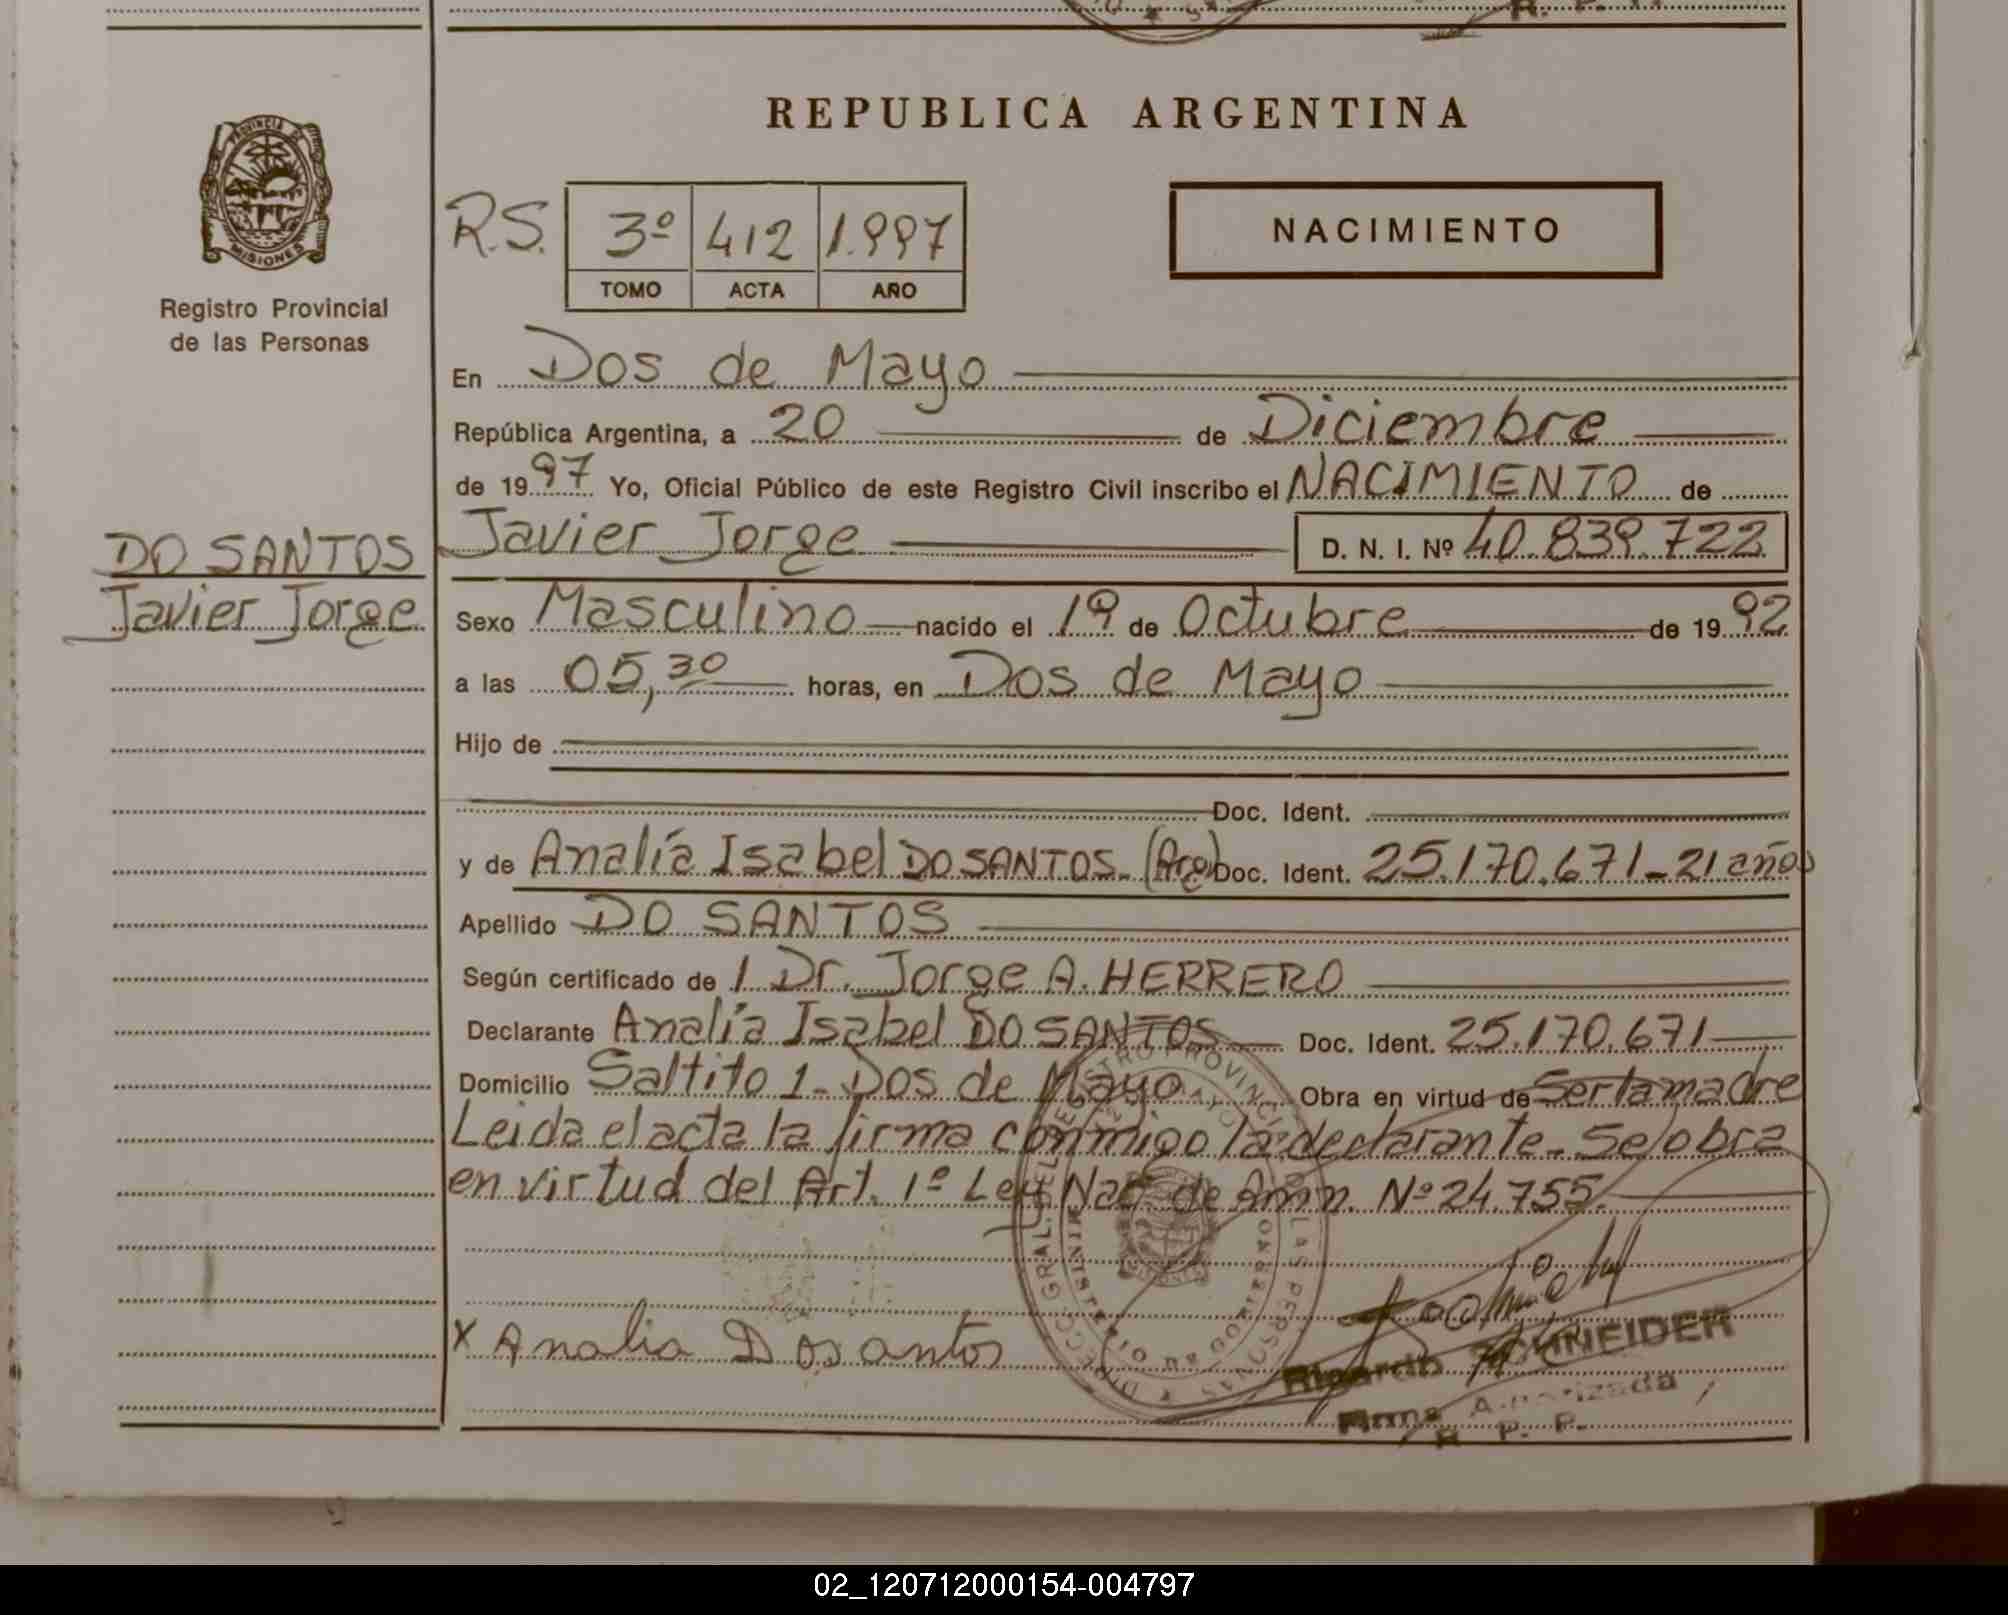 R. P. P.
PROVINCIA DE
MISIONES
Registro Provincial
de las Personas
DO SANTOS
Javier Jorge
REPUBLICA ARGENTINA
NACIMIENTO
R.S. 3º 412 1.997
TOMO ACTA AÑO
En Dos de Mayo
República Argentina, a 20 de Diciembre
de 1997 Yo, Oficial Público de este Registro Civil inscribo el NACIMIENTO de
Javier Jorge D. N. I. Nº 40.839.722
Sexo Masculino nacido el 19 de Octubre de 1992
a las 05,30 horas, en Dos de Mayo
Hijo de
Doc. Ident.
y de Analía Isabel DO SANTOS. (Arg) Doc. Ident. 25.170.671 - 21 años
Apellido DO SANTOS
Según certificado de / Dr. Jorge A. HERRERO
Declarante Analía Isabel DO SANTOS Doc. Ident. 25.170.671
Domicilio Saltito 1 - Dos de Mayo Obra en virtud de Ser la madre
Leida el acta la firma conmigo la declarante. Se obra
en virtud del Art. 1º Ley Nac. de Amn. Nº 24.755.
X Analia Dosantos
Ricardo SCHNEIDER
Firma Autorizada
R. P. P.
02_120712000154-004797